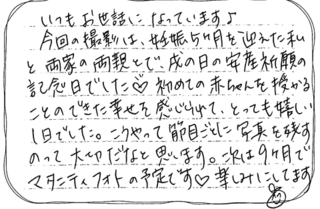 いつもお世話になっています♪
今回の撮影は、妊娠5ヶ月を迎えた私
と両家の両親とで、戌の日の安産祈願の
記念日でした♡ 初めての赤ちゃんを授かる
ことのできた幸せを感じられて、とっても嬉しい
1日でした。こうやって節目ごとに写真を残す
のって大切だなと思います。次は9ヶ月で
マタニティフォトの予定です♡ 楽しみにしてます